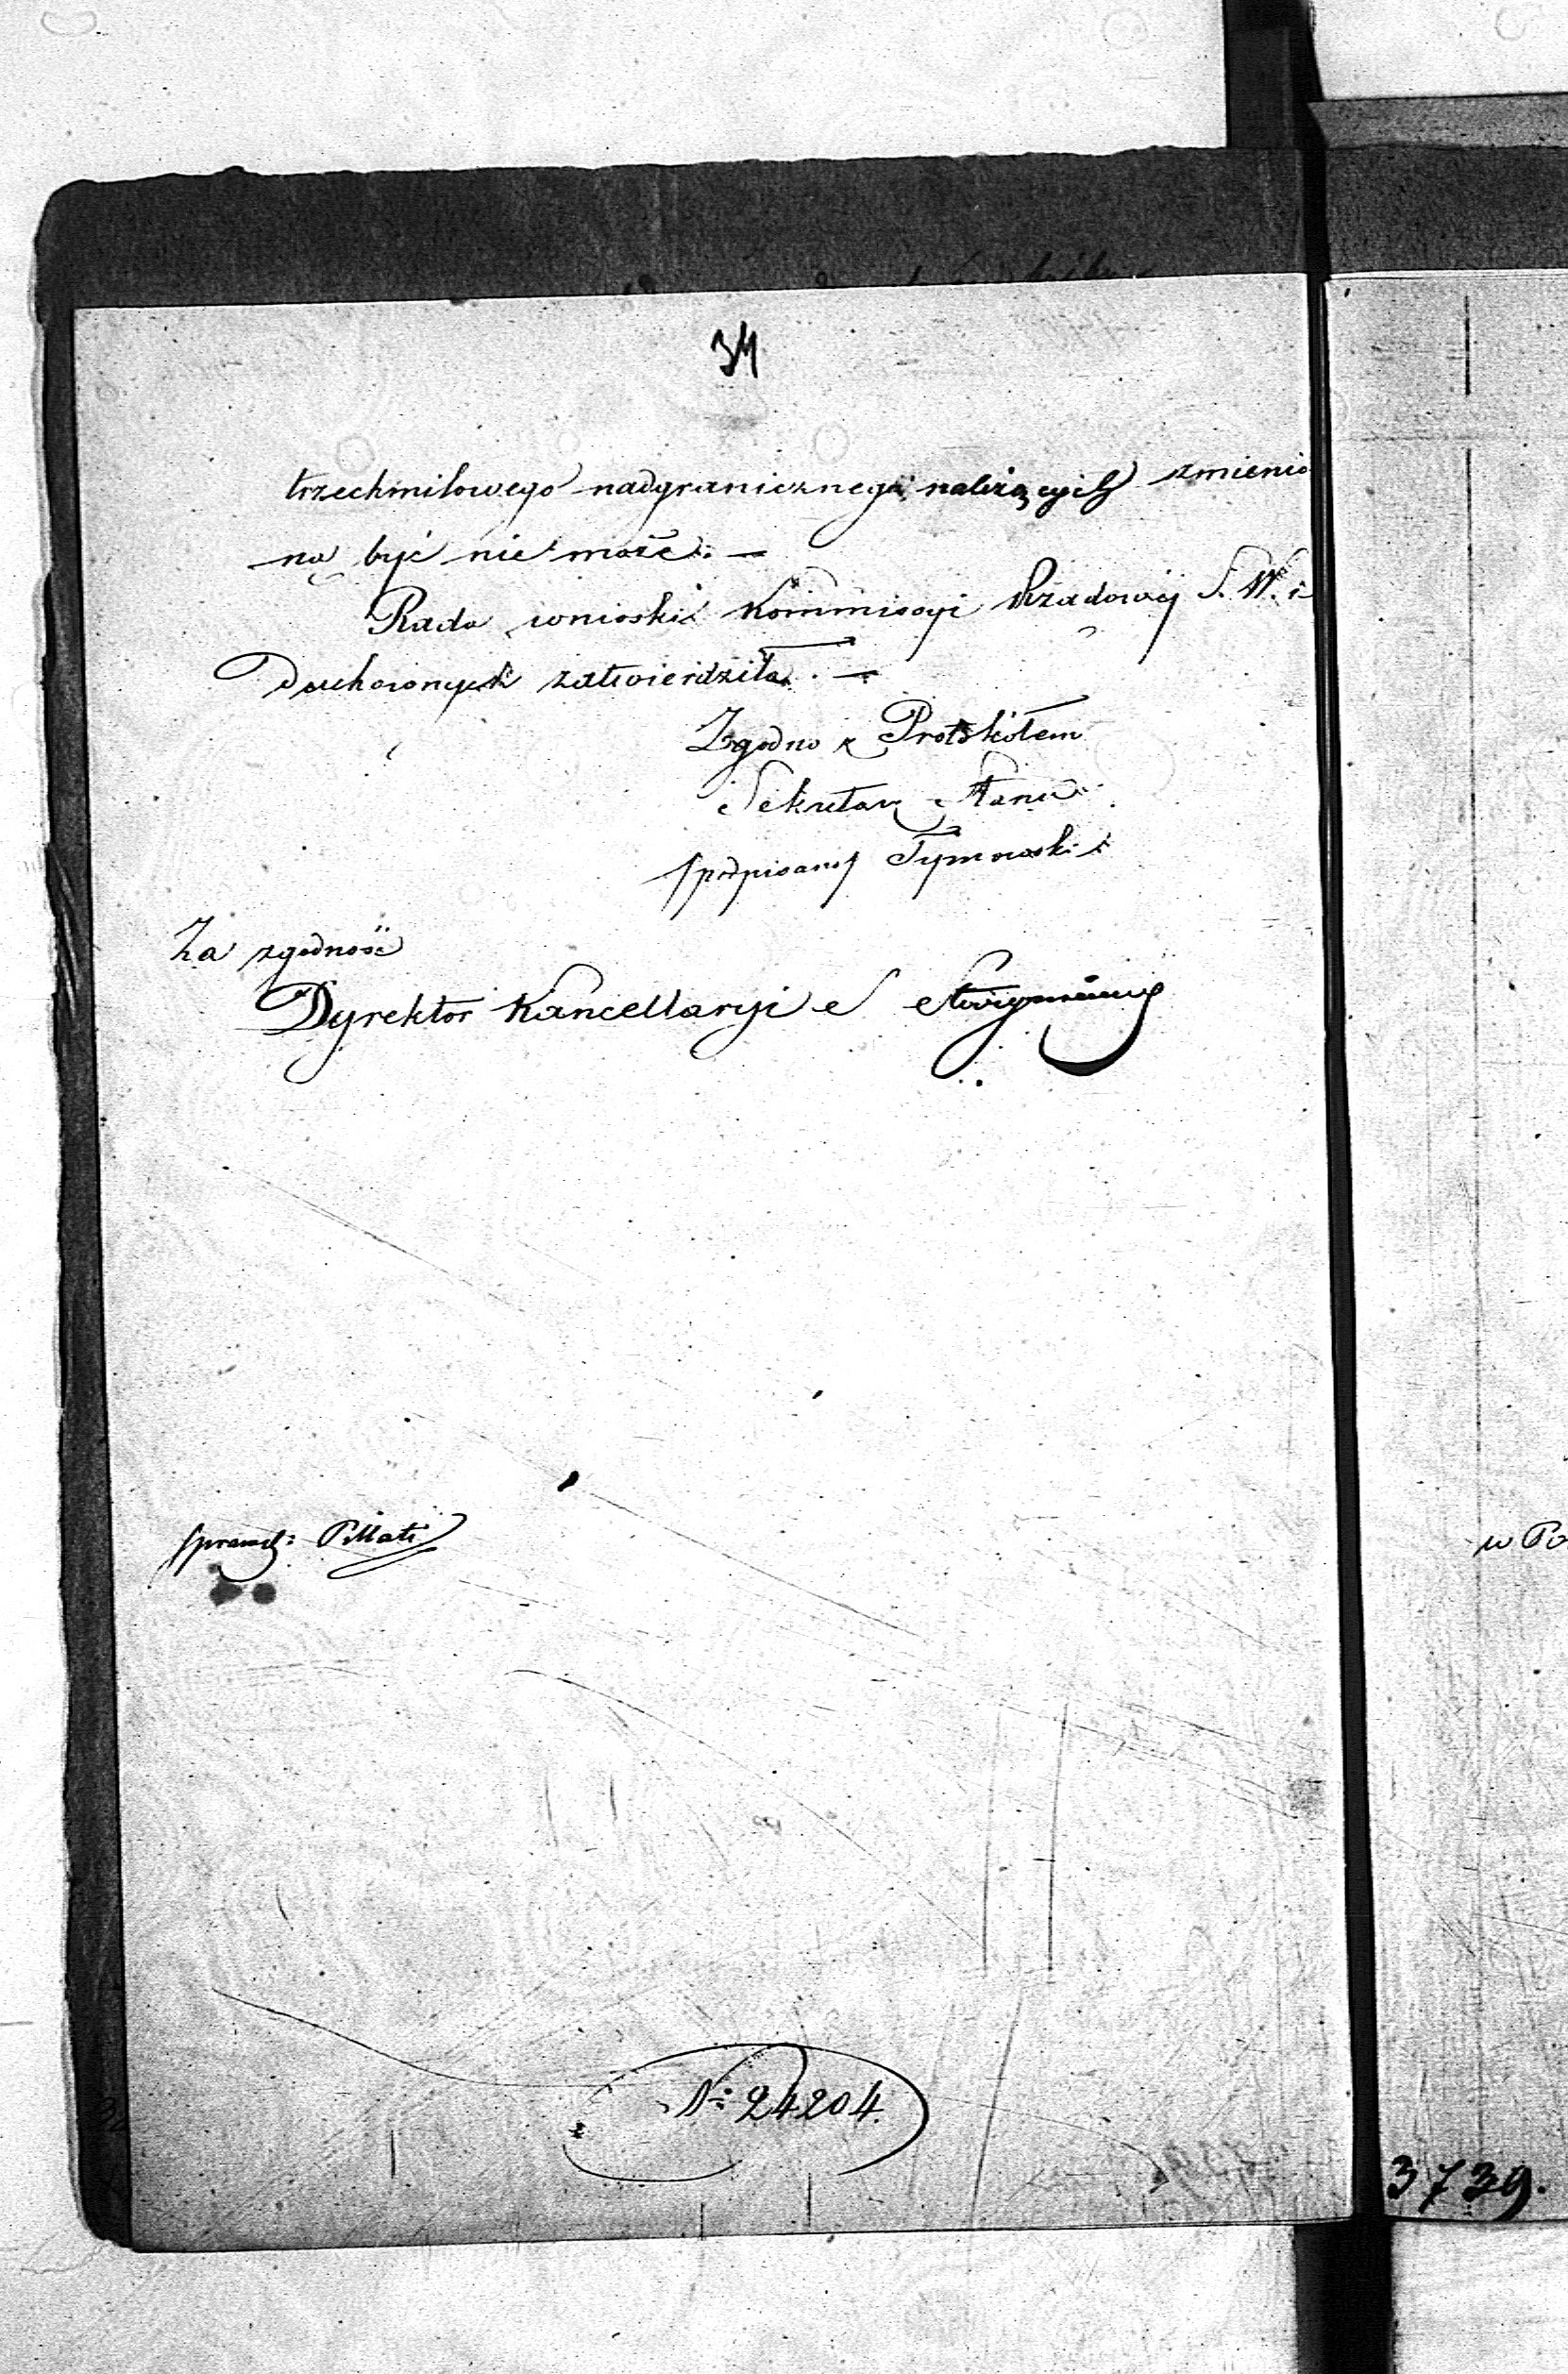 34
trzechmilowego nadgranicznego, należących zmienio
ną być nie może. —
Rada wnioski Kommissyi Rządowéj S. W. i
Duchownych zatwierdziła. —
Zgodno z Protokółem
Sekretarz Stanu
/podpisany/ Tymowski
Za zgodność
Dyrektor Kancellaryi
sprawdz: Pillati
w Po
N: 24204.
3739.